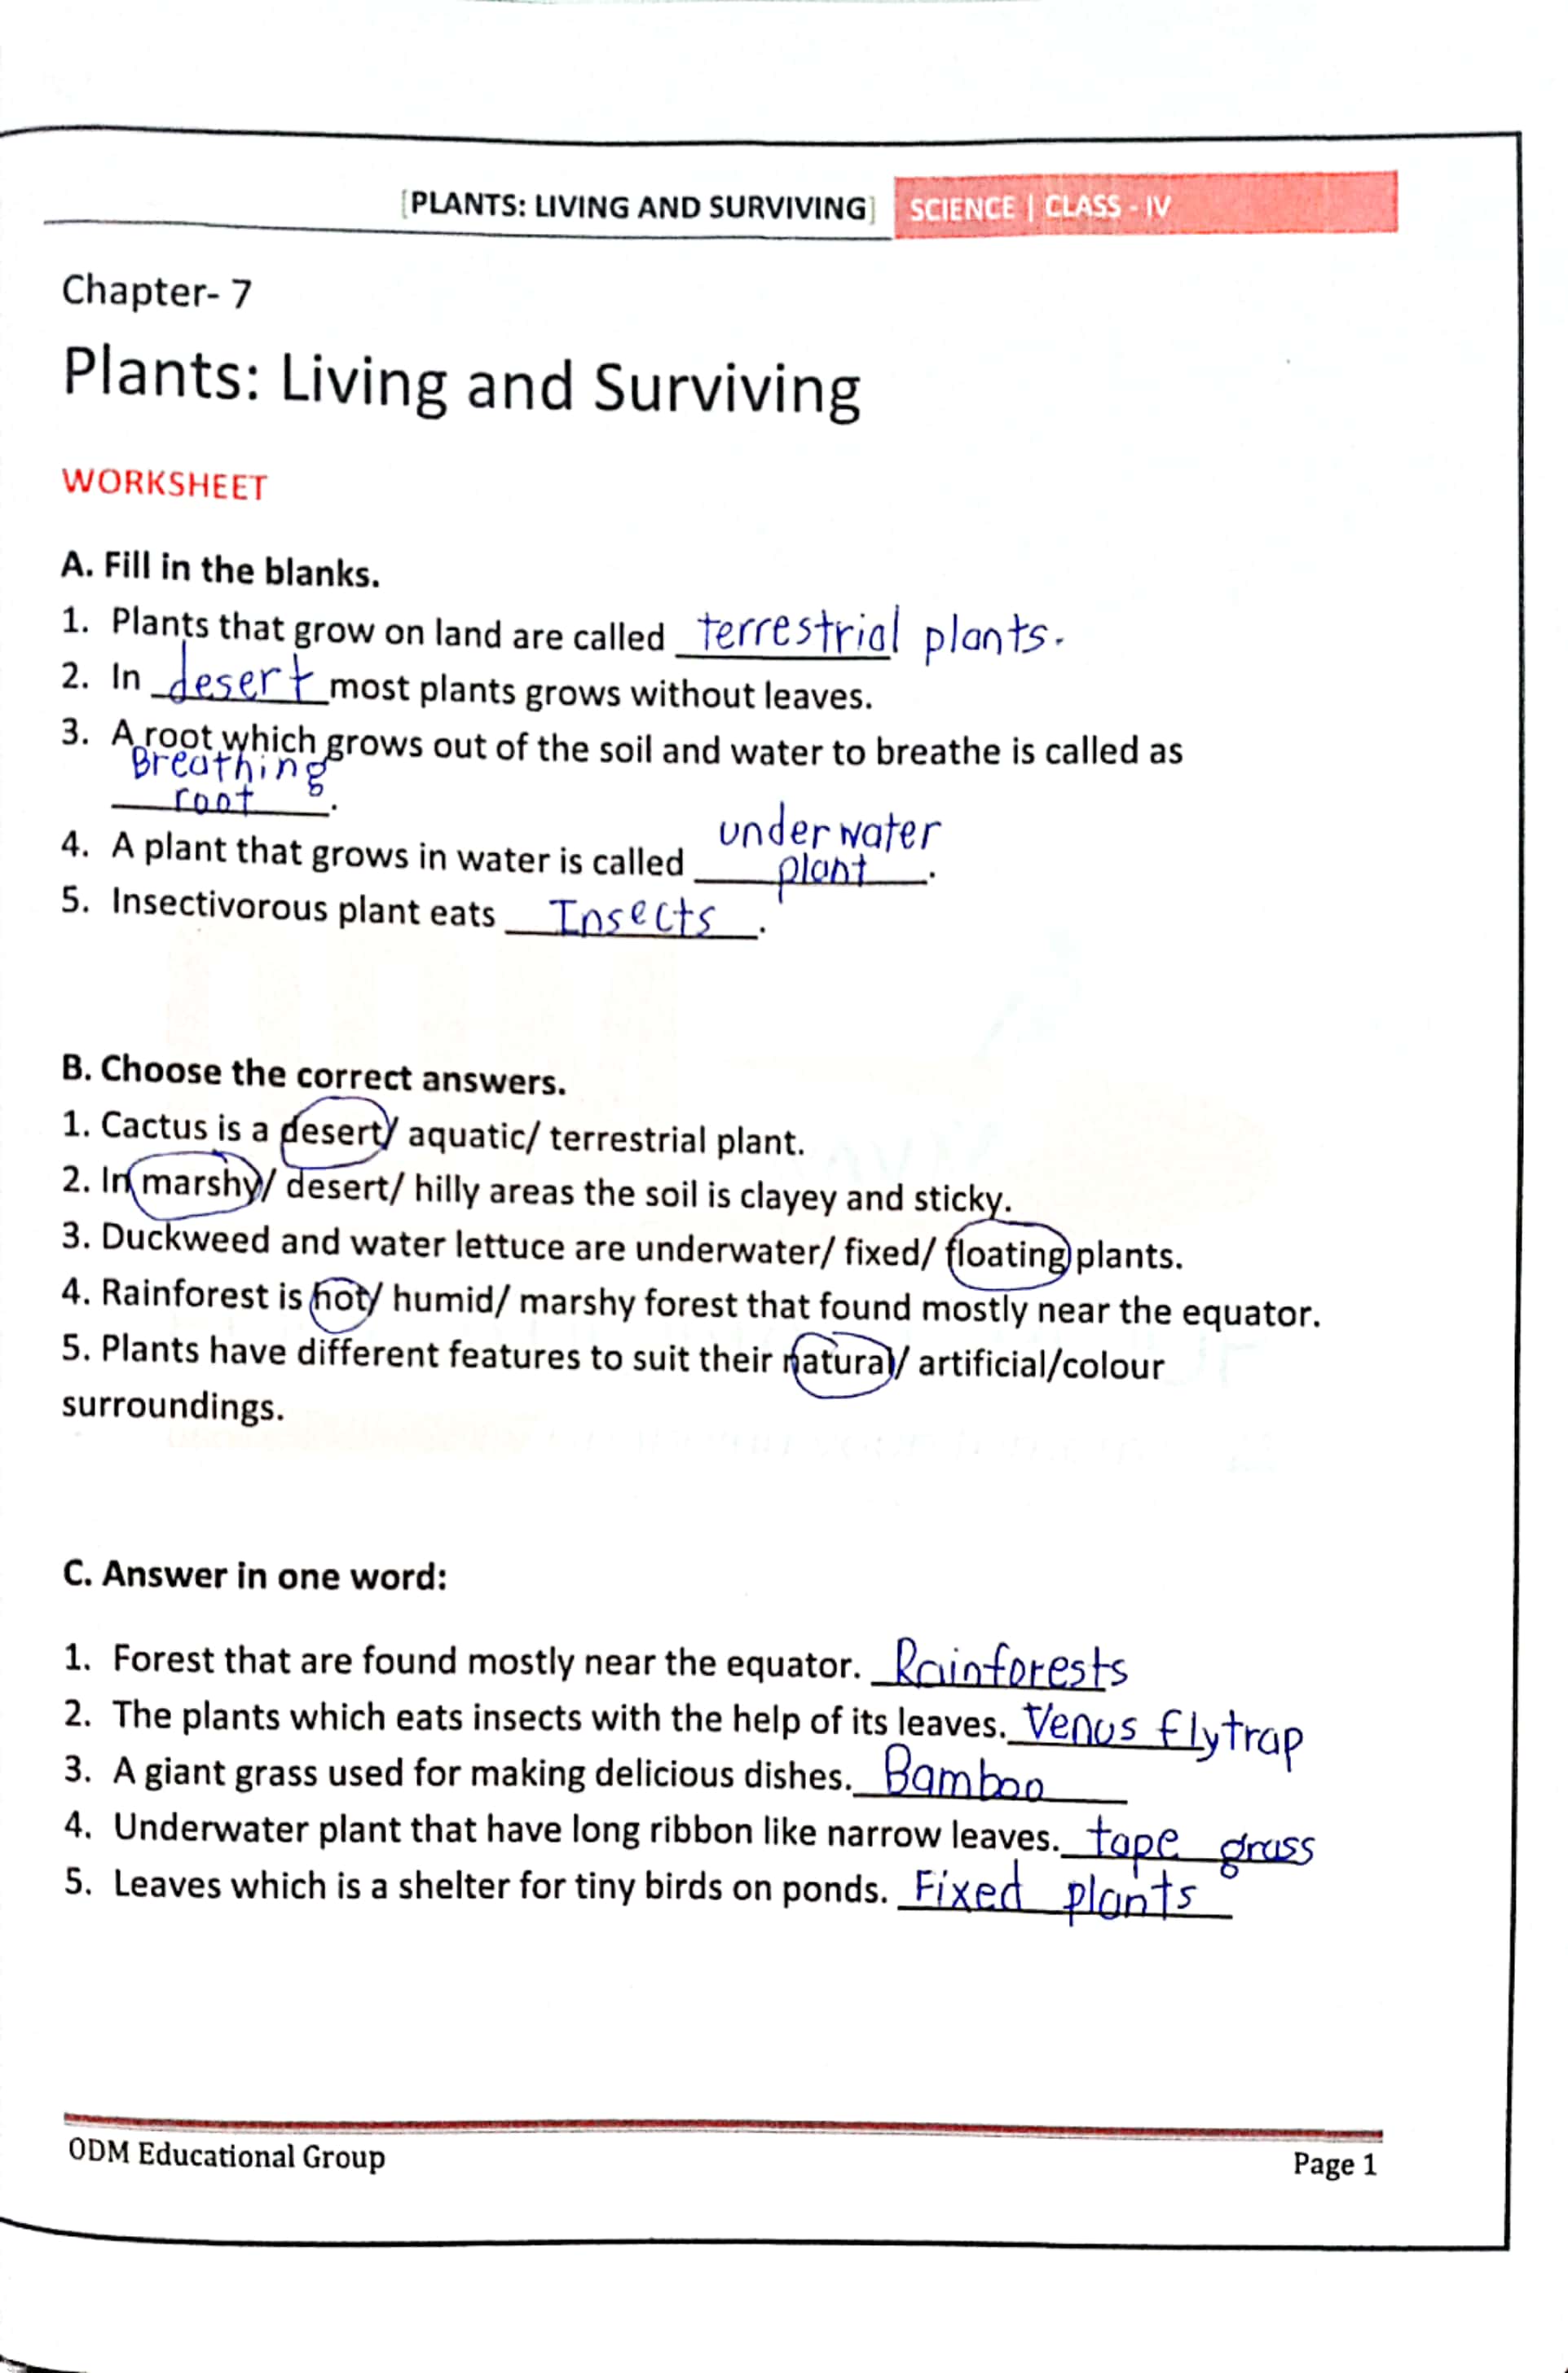 [PLANTS: LIVING AND SURVIVING] SCIENCE | CLASS - IV
Chapter- 7
Plants: Living and Surviving
WORKSHEET
A. Fill in the blanks.
1. Plants that grow on land are called terrestrial plants.
2. In desert most plants grows without leaves.
3. A root which grows out of the soil and water to breathe is called as
Breathing
root.
4. A plant that grows in water is called underwater
plant.
5. Insectivorous plant eats Insects.
B. Choose the correct answers.
1. Cactus is a desert/ aquatic/ terrestrial plant.
2. In marshy/ desert/ hilly areas the soil is clayey and sticky.
3. Duckweed and water lettuce are underwater/ fixed/ floating plants.
4. Rainforest is hot/ humid/ marshy forest that found mostly near the equator.
5. Plants have different features to suit their natural/ artificial/colour
surroundings.
C. Answer in one word:
1. Forest that are found mostly near the equator. Rainforests
2. The plants which eats insects with the help of its leaves. Venus flytrap
3. A giant grass used for making delicious dishes. Bamboo
4. Underwater plant that have long ribbon like narrow leaves. tape grass
5. Leaves which is a shelter for tiny birds on ponds. Fixed plants
ODM Educational Group Page 1